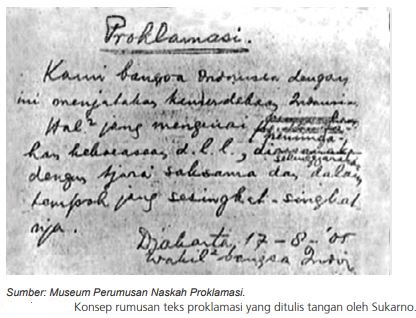 Proklamasi.
Kami bangsa Indonesia dengan
ini menjatakan kemerdekaan Indonesia.
Hal² jang mengenai pemindahan
kekoeasaan d.l.l., diselenggarakan
dengan tjara saksama dan dalam
tempoh jang sesingkat-singkat
nja.
Djakarta, 17-8-'05
Wakil² bangsa Indon
Sumber: Museum Perumusan Naskah Proklamasi.
Konsep rumusan teks proklamasi yang ditulis tangan oleh Sukarno.